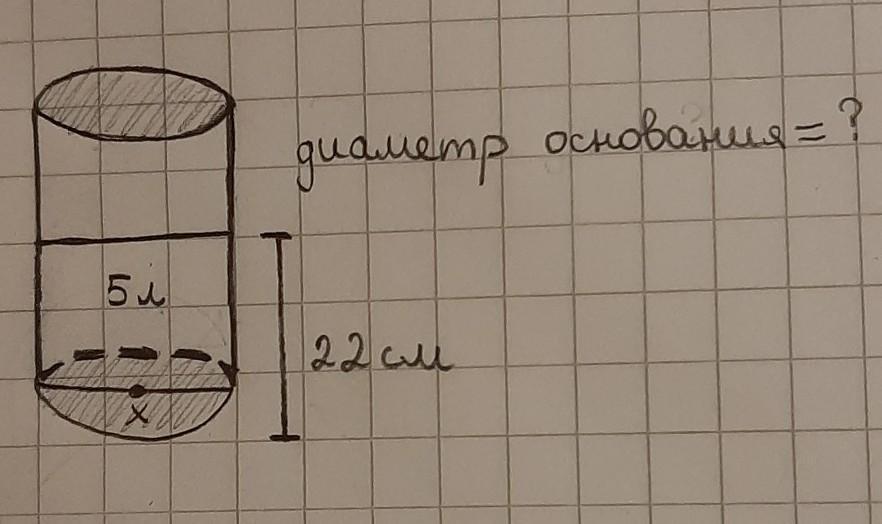 диаметр основания = ?
5л
22см
x